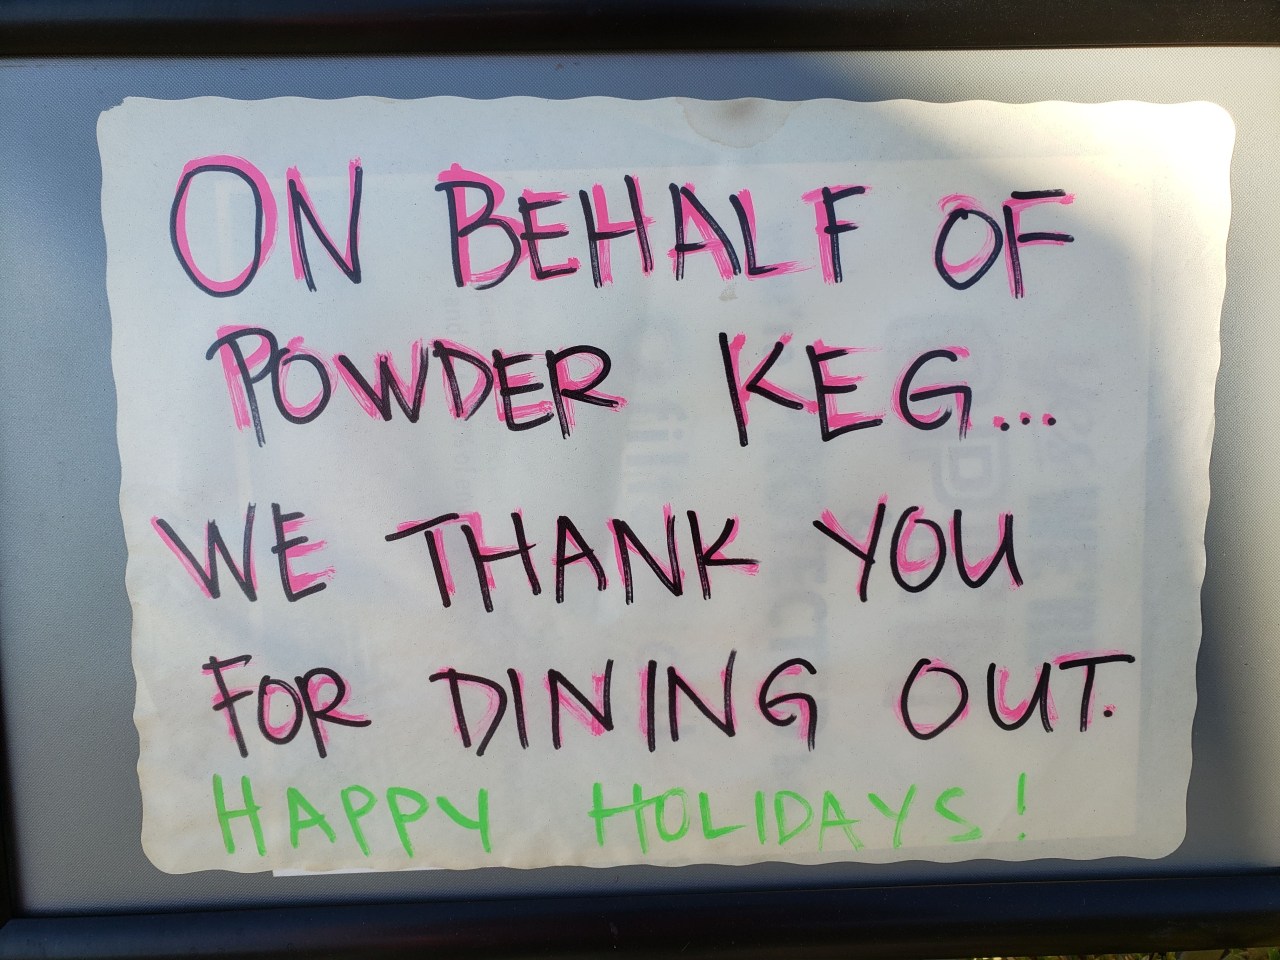 ON BEHALF OF
POWDER KEG...
WE THANK YOU
FOR DINING OUT.
HAPPY HOLIDAYS!